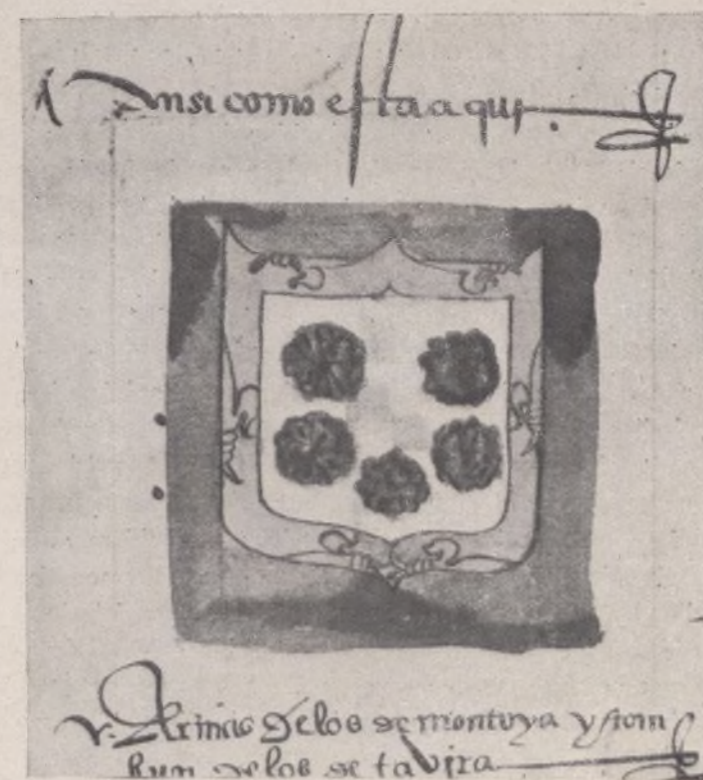 Ansi como esta aqui.
Armas de los de montoya y
de los de tavira